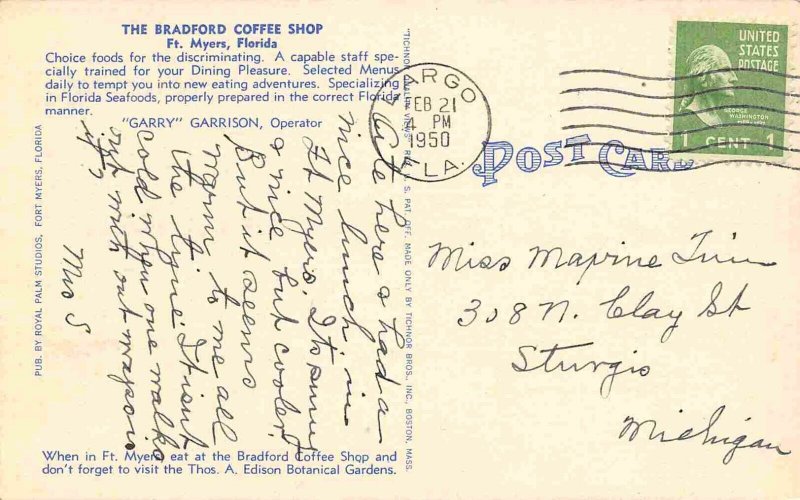 THE BRADFORD COFFEE SHOP
Ft. Myers, Florida
Choice foods for the discriminating. A capable staff spe-
cially trained for your Dining Pleasure. Selected Menus
daily to tempt you into new eating adventures. Specializing
in Florida Seafoods, properly prepared in the correct Florida
manner.
"GARRY" GARRISON, Operator
Ate here & had a
nice lunch, in
Ft Myers. Its sunny
& nice but cooler.
But it seems
warm to me all
the time. It isnt
cold when one walks
right with out
Mrs S
When in Ft. Myers eat at the Bradford Coffee Shop and
don't forget to visit the Thos. A. Edison Botanical Gardens.
PUB. BY ROYAL PALM STUDIOS, FORT MYERS, FLORIDA
REG. U. S. PAT. OFF. MADE ONLY BY TICHNOR BROS., INC., BOSTON, MASS.
LARGO
FEB 21
PM
1950
FLA.
UNITED
STATES
POSTAGE
GEORGE
WASHINGTON
1 CENT 1
POST CARD
Miss Maxine
308 N. Clay St
Sturgis
Michigan